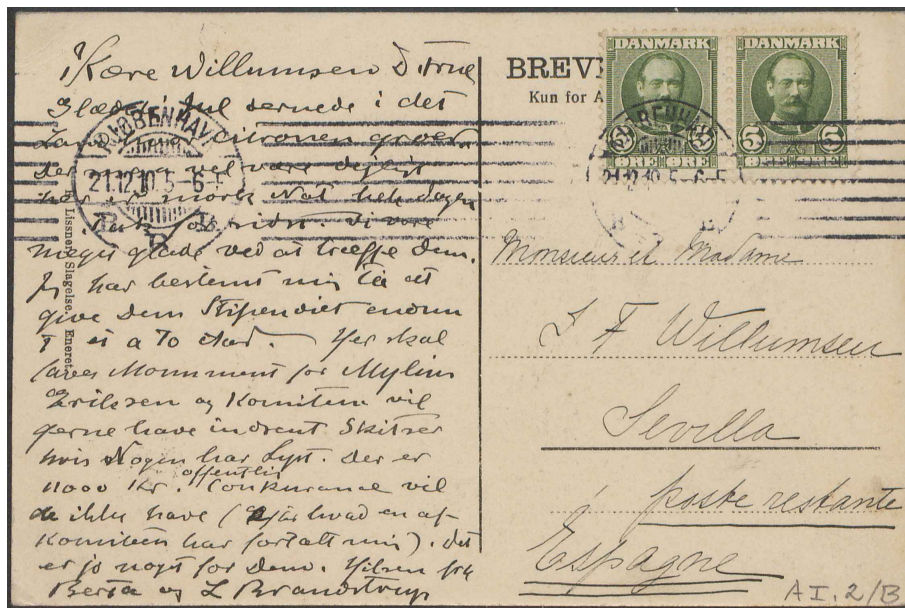 Kære Willumsen & Frue
Glædelig Jul dernede i det
Land Citronen groer.
Der maa vel være dejligt
her er mørk Nat hele dagen
Tak for sidst. Vi vare
meget glade ved at træffe Dem.
Jeg har bestemt mig til at
give Dem Stipendiet endnu
et a To Aar. – Her skal
laves Monument for Mylius
Eriksen og Komiteen vil
gerne have indsent Skitser
hvis Nogen har Lyst. Der er
11000 Kr. offentlig Conkurance vil
de ikke have (efter hvad en af
Komiteen har fortalt mig). Det
er jo noget for Dem. Hilsen fra
Berta og L Brandstrup
Lissner, Slagelse. Eneret.
BREV
Kun for A
DANMARK
5 5
ØRE ØRE
DANMARK
5 5
ØRE ØRE
KJØBENHAVN
21.12.10. 5-6 E
B.
21.12.10. 5-6 E
Monsieur et Madame
J F Willumsen
Sevilla
poste restante
Espagne
A I. 2/B